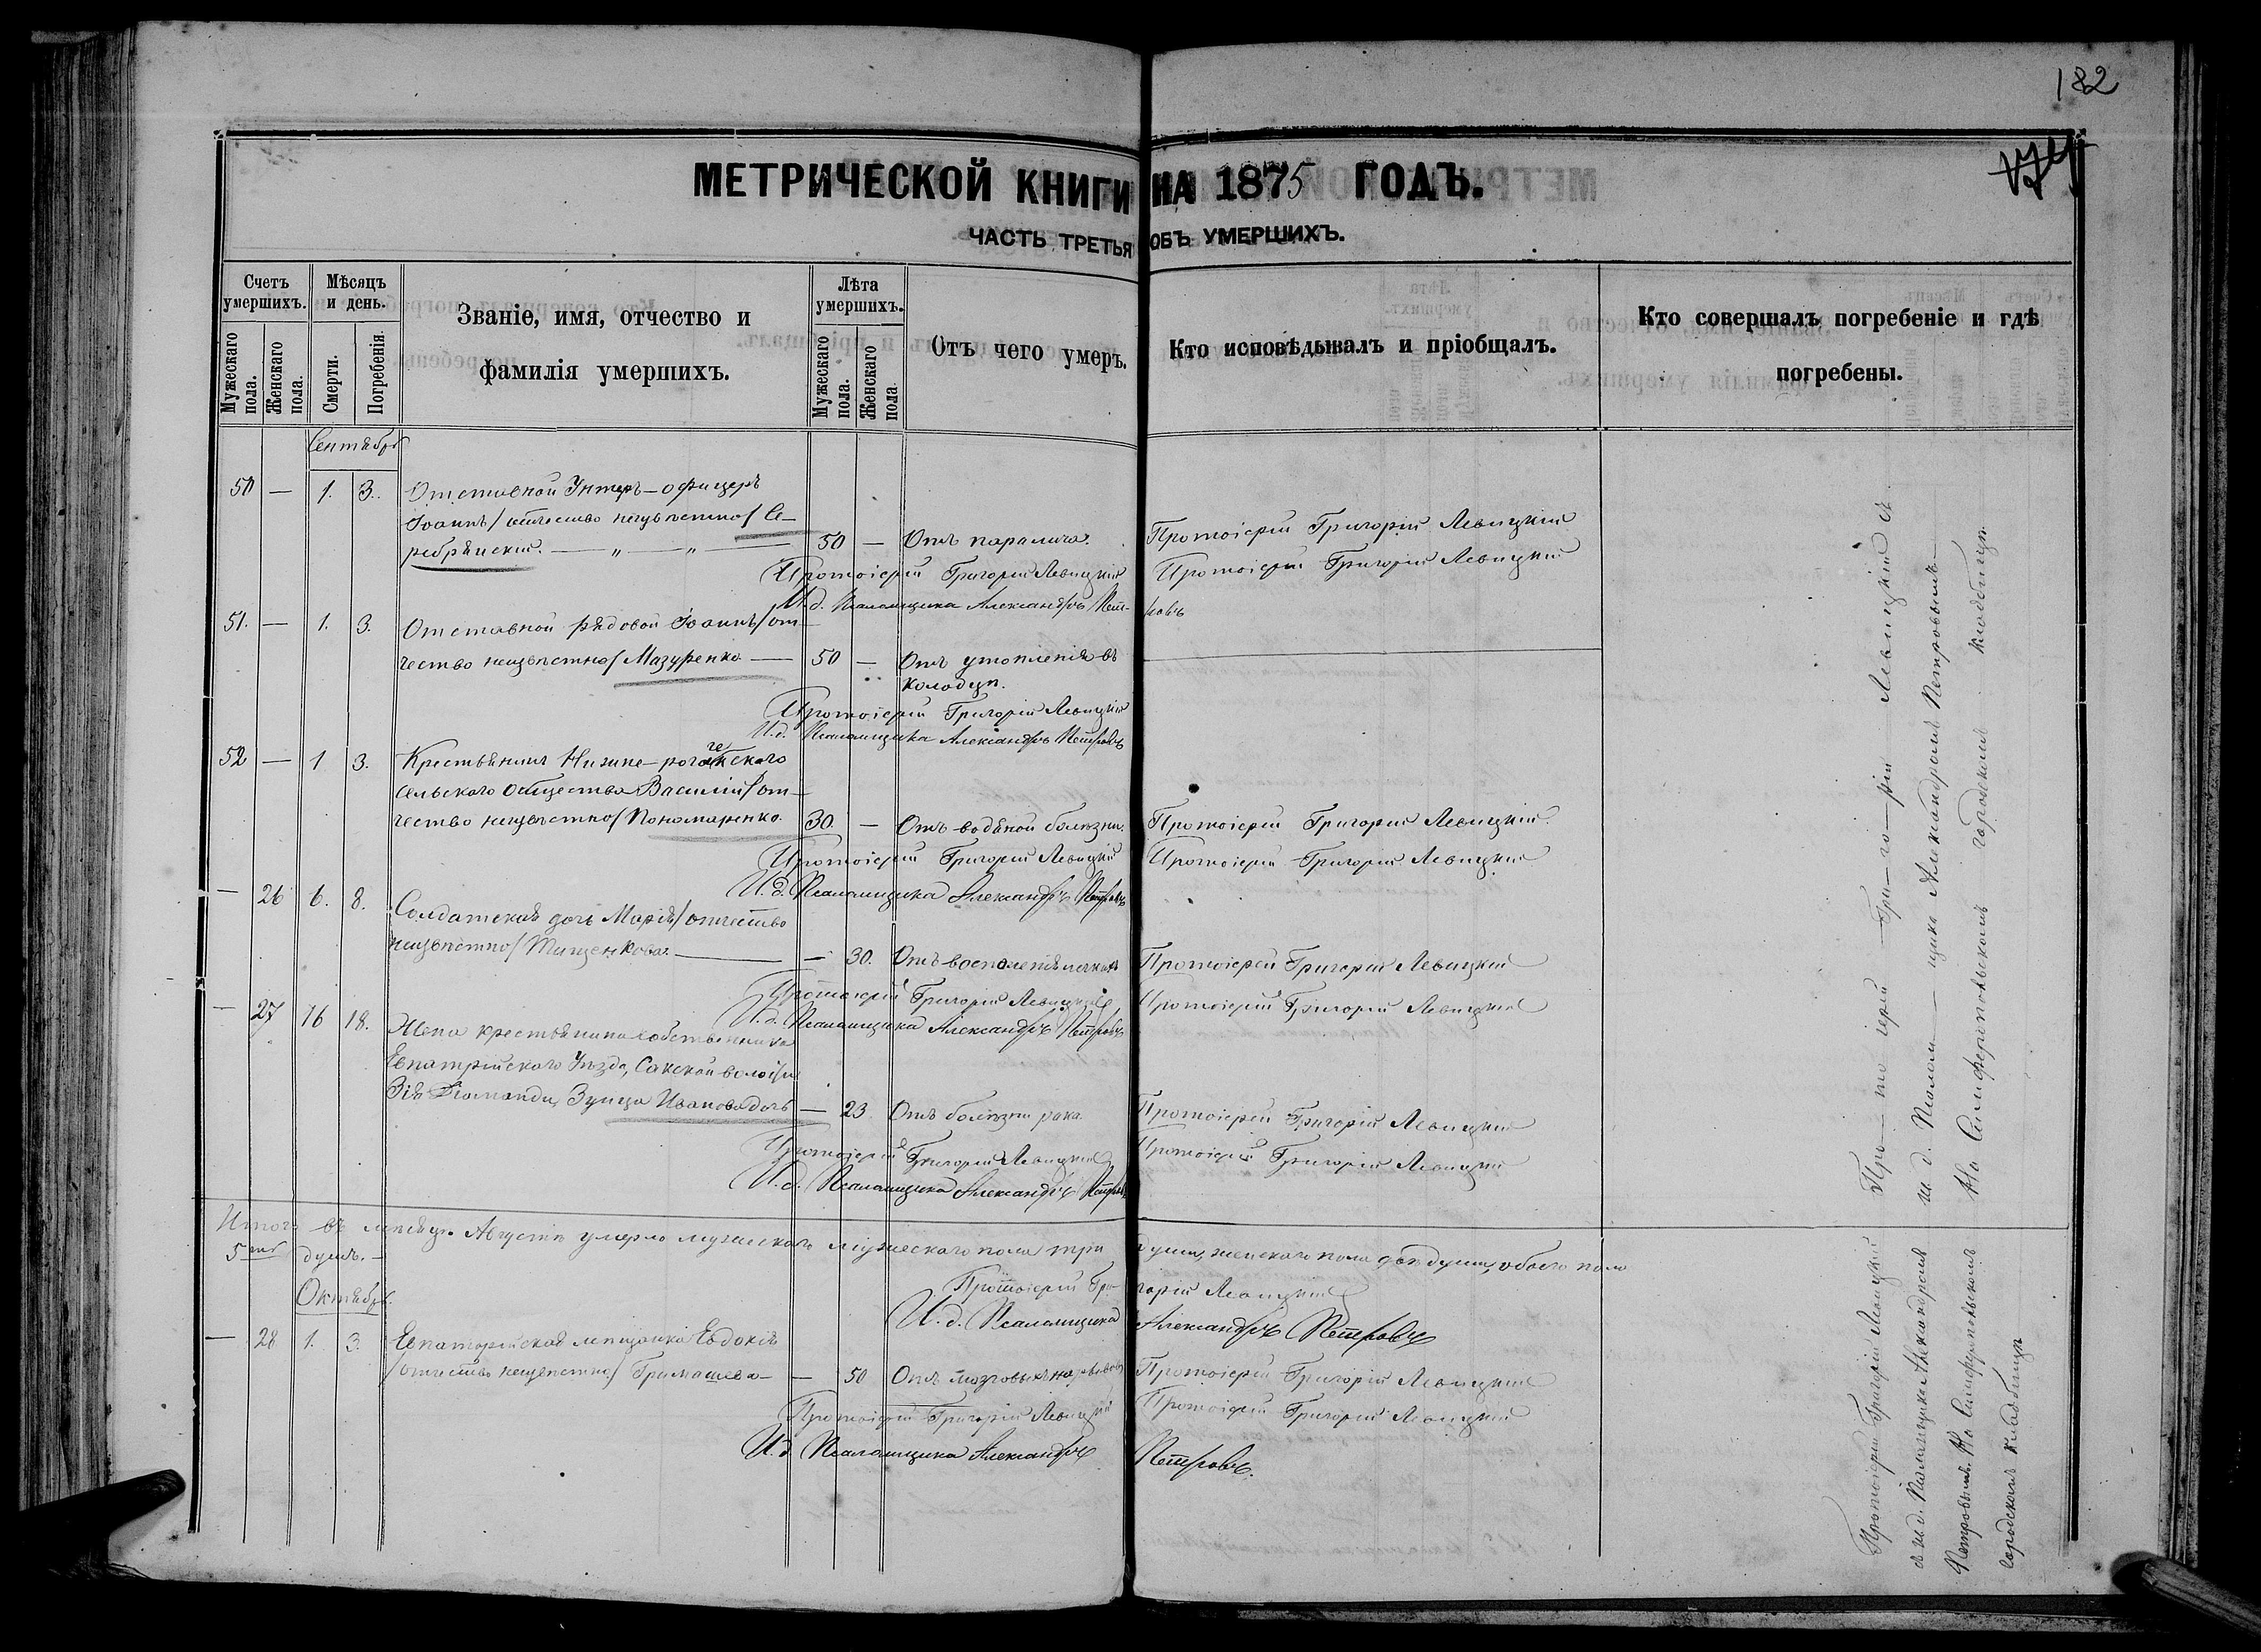 182
174
МЕТРИЧЕСКОЙ КНИГИ НА 1875 ГОДЪ.
ЧАСТЬ ТРЕТЬЯ ОБЪ УМЕРШИХЪ.
Счетъ умершихъ.
Мужескаго пола.
Женскаго пола.
Мѣсяцъ и день.
Смерти.
Погребенія.
Званіе, имя, отчество и
фамилія умершихъ.
Лѣта умершихъ.
Мужескаго пола.
Женскаго пола
Отъ чего умеръ.
Кто исповѣдывалъ и пріобщалъ.
Кто совершалъ погребеніе и гдѣ
погребены.
Сентябрь
50 — 1. 3. Отставной Унтеръ-офицеръ
Іоаннъ /отчество неизвѣстно/ Се-
ребрянскій. — „ — „ — 50 — Отъ паралича. Протоіерей Григорій Левицкій
Протоіерей Григорій Левицкій Протоіерей Григорій Левицкій
И.д. Псаломщика Александръ Петровъ
51. — 1. 3. Отставной рядовой Іоаннъ /от-
чество неизвѣстно/ Мазуренко — 50 — Отъ утопленія въ
колодцѣ.
Протоіерей Григорій Левицкій
И.д. Псаломщика Александръ Петровъ
52 — 1 3. Крестьянинъ Нижне-рогачевскаго
сельскаго общества Василій /от-
чество неизвѣстно/ Пономаренко. 30 — Отъ водяной болѣзни. Протоіерей Григорій Левицкій.
Протоіерей Григорій Левицкій Протоіерей Григорій Левицкій
И.д. Псаломщика Александръ Петровъ
— 26 6. 8. Солдатская дочь Марія /отчество
неизвѣстно/ Тищенкова. — — 30. Отъ воспаленія легкихъ Протоіерей Григорій Левицкій
Протоіерей Григорій Левицкій Протоіерей Григорій Левицкій
И.д. Псаломщика Александръ Петровъ
— 27 16 18. Жена крестьянина собственника
Евпаторійскаго Уѣзда, Сакской волости
Иванова дочь — 23. Отъ болѣзни рака Протоіерей Григорій Левицкій
Протоіерей Григорій Левицкій Протоіерей Григорій Левицкій
И.д. Псаломщика Александръ Петровъ
Итого въ мѣсяцѣ Августѣ умерло мужескаго мужескаго пола три души, женскаго пола двѣ души, обоего пола
5ть душъ. —
Протоіерей Григорій Левицкій
И.д. Псаломщика Александръ Петровъ
Октябрь.
— 28 1. 3. Евпаторійская мѣщанка Евдокія
/отчество неизвѣстно/ Гримашева — — 50 Отъ мозговыхъ Протоіерей Григорій Левицкій
Протоіерей Григорій Левицкій Протоіерей Григорій Левицкій
И.д. Псаломщика Александръ Петровъ.
Про-то іерей Гри-го-рій Левицкій съ
и.д. Псалом-щика Александромъ Петровымъ —
На Симферопольскомъ городскомъ кладбищѣ.
Протоіерей Григорій Левицкій
съ и.д. Псаломщика Александромъ
Петровымъ. На Симферопольскомъ
городскомъ кладбищѣ